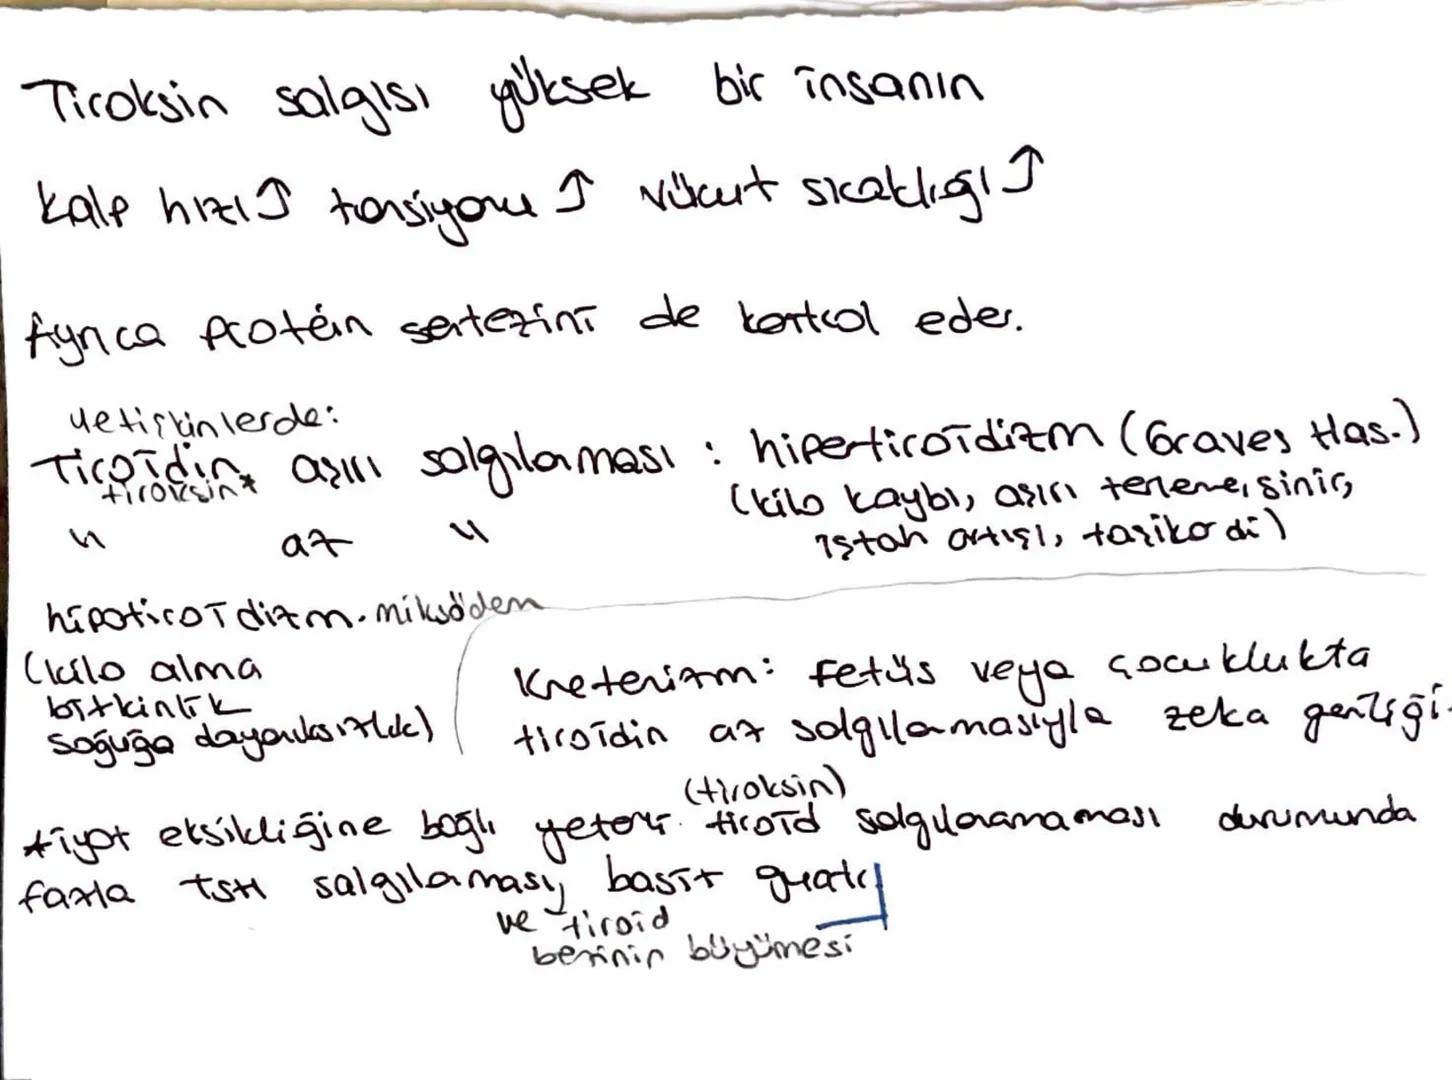 Tiroksin salgısı yüksek bir insanın
Kalp hızı↑ tansiyonu↑ vücut sıcaklığı↑
Ayrıca protein sentezini de kontrol eder.
Yetişkinlerde:
Tiroidin aşırı salgılanması : hipertiroidizm (Graves Has.)
tiroksin*
(kilo kaybı, aşırı terleme, sinir,
" az "
iştah artışı, taşikardi)
hipotiroidizm. miksödem
(kilo alma
bitkinlik
soğuğa dayanıksızlık)
Kretenizm: Fetüs veya çocuklukta
tiroidin az salgılanmasıyla zeka geriliği.
(tiroksin)
İyot eksikliğine bağlı yeterli tiroid salgılanamaması durumunda
fazla TSH salgılaması, basit guatr
ve tiroid
bezinin büyümesi